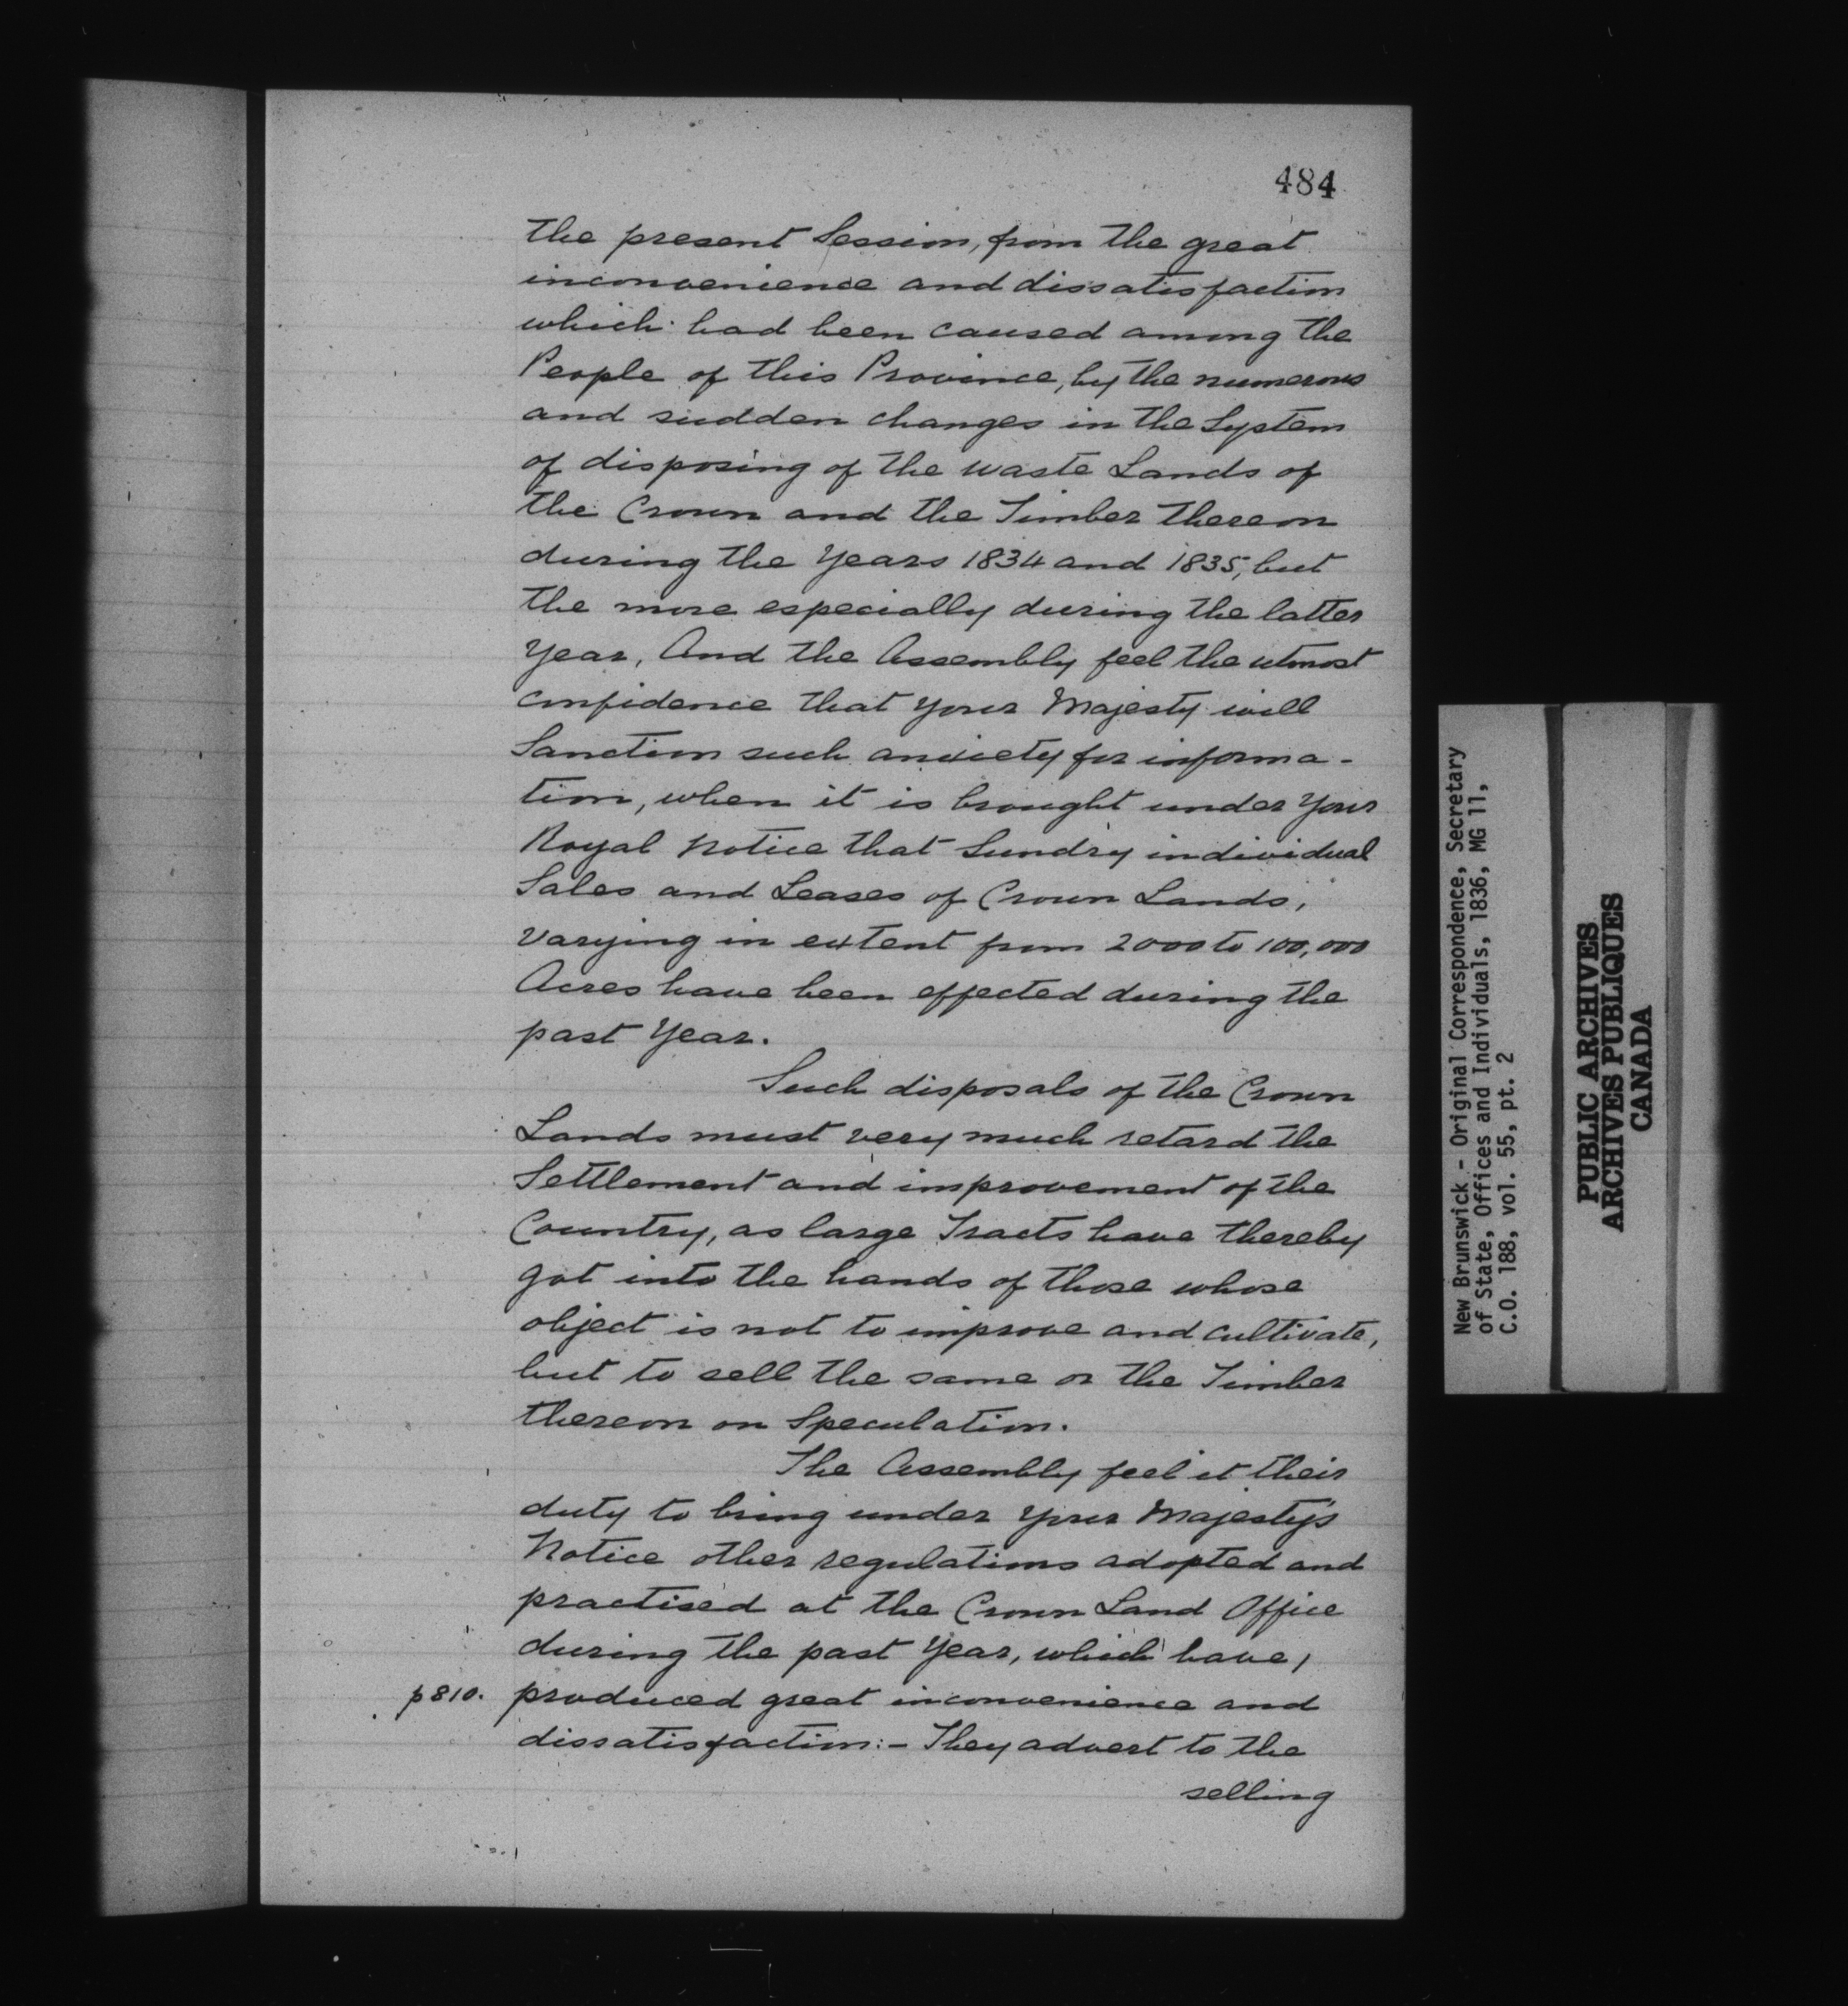 484
the present Session, from the great
inconvenience and dissatisfaction
which had been caused among the
People of this Province, by the numerous
and sudden changes in the System
of disposing of the waste Lands of
the Crown and the Timber thereon
during the Years 1834 and 1835, but
the more especially during the latter
Year, And the Assembly feel the utmost
confidence that your Majesty will
Sanction such anxiety for informa-
tion, when it is brought under Your
Royal Notice that Sundry individual
Sales and Leases of Crown Lands,
Varying in extent from 2000 to 100,000
Acres have been effected during the
past Year.
Such disposals of the Crown
Lands must very much retard the
Settlement and improvement of the
Country, as large Tracts have thereby
got into the hands of those whose
object is not to improve and cultivate,
but to sell the same or the Timber
thereon on Speculation.
The Assembly feel it their
duty to bring under Your Majesty's
Notice other regulations adopted and
practised at the Crown Land Office
during the past Year, which have,
p810. produced great inconvenience and
dissatisfaction:- They advert to the
selling
New Brunswick - Original Correspondence, Secretary
of State, Offices and Individuals, 1836, MG 11,
C.O. 188, vol. 55, pt. 2
PUBLIC ARCHIVES
ARCHIVES PUBLIQUES
CANADA